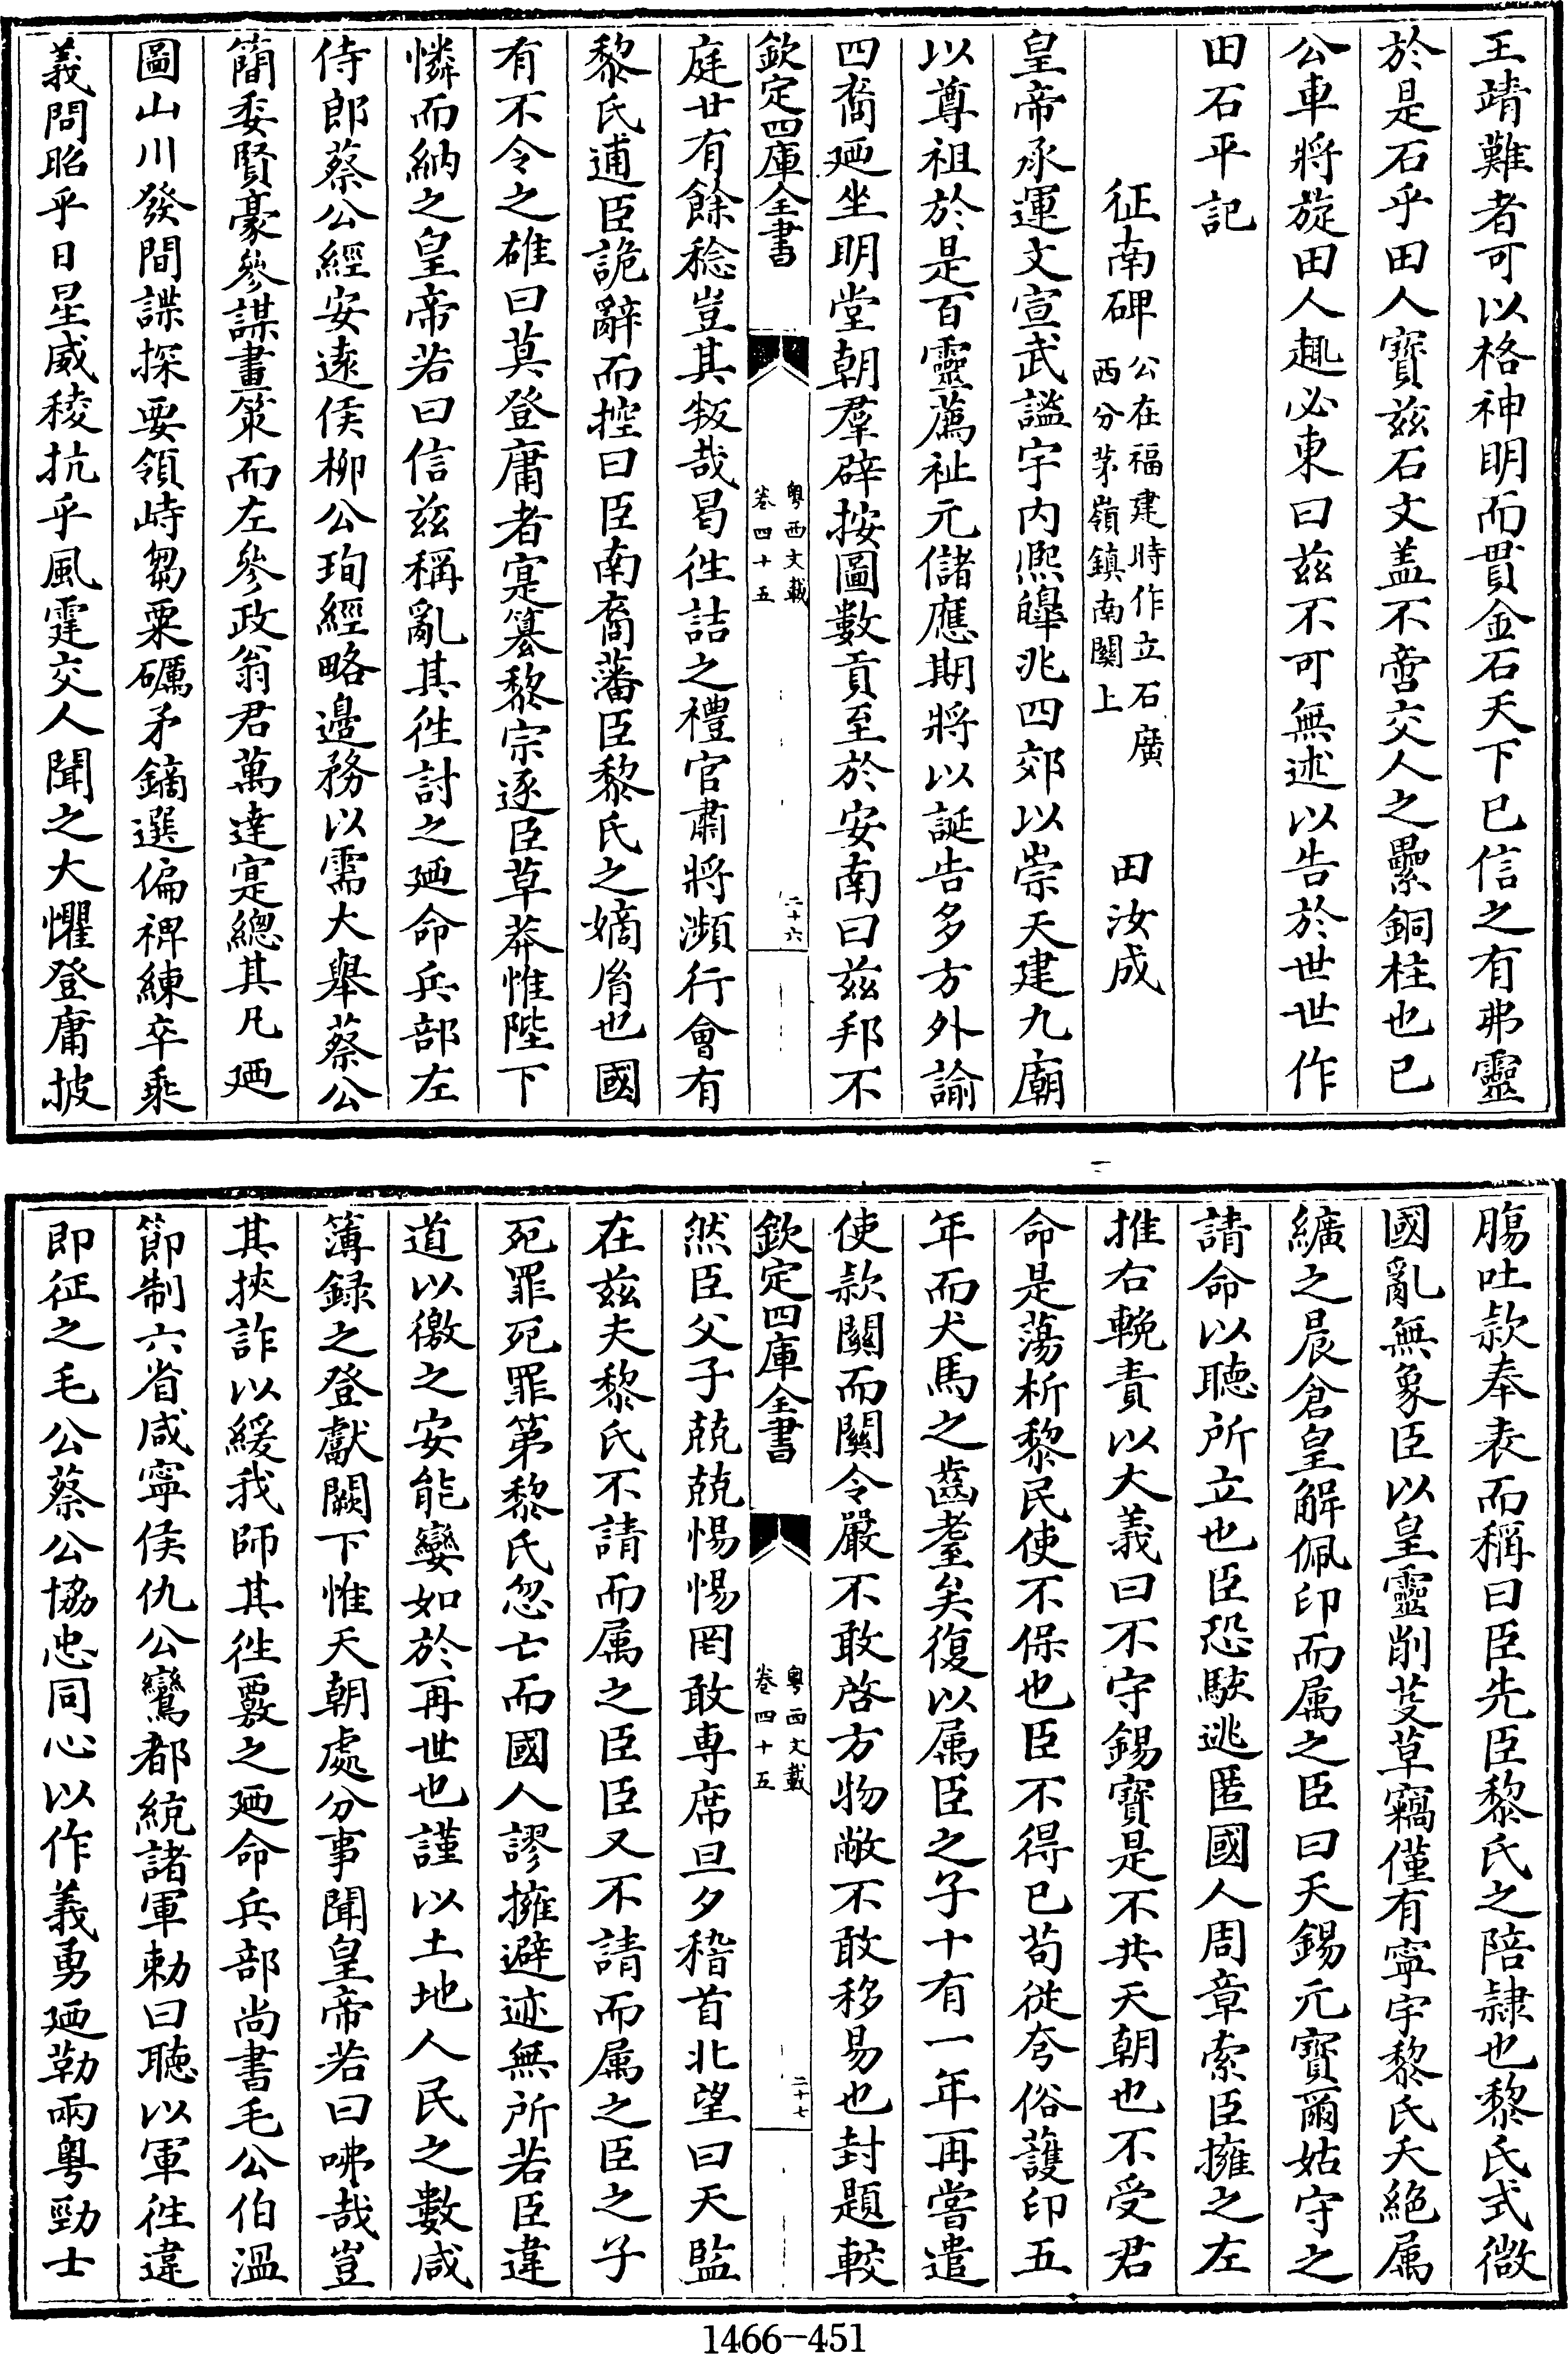 王靖難者可以格神明而貫金石天下已信之有弗靈
於是石乎田人寳兹石文盖不啻交人之纍銅柱也已
公車將旋田人趣必東曰兹不可無述以告於世世作
田石平記
征南碑 公在福建時作立石廣西分茅嶺鎮南關上 田汝成
皇帝承運文宣武謐宇内熈皡兆四郊以崇天建九廟
以尊祖於是百靈薦祉元儲應期將以誕告多方外諭
四裔廼坐明堂朝羣辟按圖數貢至於安南曰兹邦不
欽定四庫全書 粤西文載 卷四十五 二十六
庭廿有餘稔豈其叛哉曷徃詰之禮官肅將瀕行會有
黎氏逋臣詭辭而控曰臣南裔藩臣黎氏之嫡胤也國
有不令之雄曰莫登庸者寔簒黎宗逐臣草莽惟陛下
憐而納之皇帝若曰信兹稱亂其徃討之廼命兵部左
侍郎蔡公經安逺侯柳公珣經略邉務以需大舉蔡公
簡委賢豪參謀畫策而左參政翁君萬達寔總其凡廼
圖山川發間諜探要領峙芻粟礪矛鏑選偏裨練卒乘
義問昭乎日星威稜抗乎風霆交人聞之大懼登庸披
腸吐款奉表而稱曰臣先臣黎氏之陪隷也黎氏式微
國亂無象臣以皇靈削芟草竊僅有寧宇黎氏夭絶属
纊之晨倉皇解佩印而属之臣曰天錫元寳爾姑守之
請命以聽所立也臣恐駭逃匿國人周章索臣擁之左
推右輓責以大義曰不守錫寳是不共天朝也不受君
命是蕩析黎民使不保也臣不得已苟從夸俗䕶印五
年而犬馬之齒耋矣復以属臣之子十有一年再嘗遣
使款關而關令嚴不敢啓方物敝不敢移易也封題較
欽定四庫全書 粤西文載 卷四十五 二十七
然臣父子兢兢惕惕罔敢專席旦夕稽首北望曰天監
在兹夫黎氏不請而属之臣臣又不請而属之臣之子
死罪死罪第黎氏忽亡而國人謬擁避迹無所若臣違
道以徼之安能孌如於再世也謹以土地人民之數咸
簿録之登獻闕下惟天朝處分事聞皇帝若曰咈哉豈
其挾詐以緩我師其徃覈之廼命兵部尚書毛公伯溫
節制六省咸寧侯仇公鸞都統諸軍勅曰聽以軍徃違
即征之毛公蔡公協忠同心以作義勇廼勒兩粤勁士
1466-451